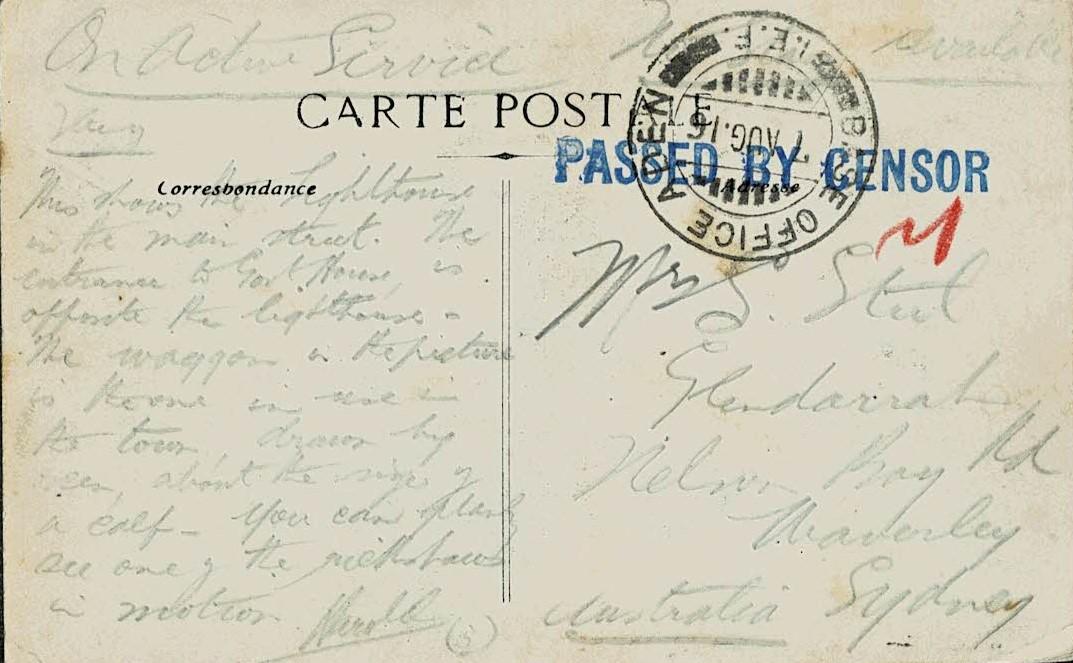 On Active Service
No available
CARTE POSTALE
BASE OFFICE ADEN
I.E.F.
7 AUG. 16
PASSED BY CENSOR
Correspondance
Adresse
This shows the lighthouse
in the main street. The
entrance to Port House, is
opposite the lighthouse -
The waggon in the picture
is the one in use in
the town, drawn by
oxen, about the size of
a calf - You can plainly
see one of the rickshaws
in motion
(5)
Mrs S. Steel
Glendarrah
Nelson Bay Rd
Waverley
Sydney
Australia